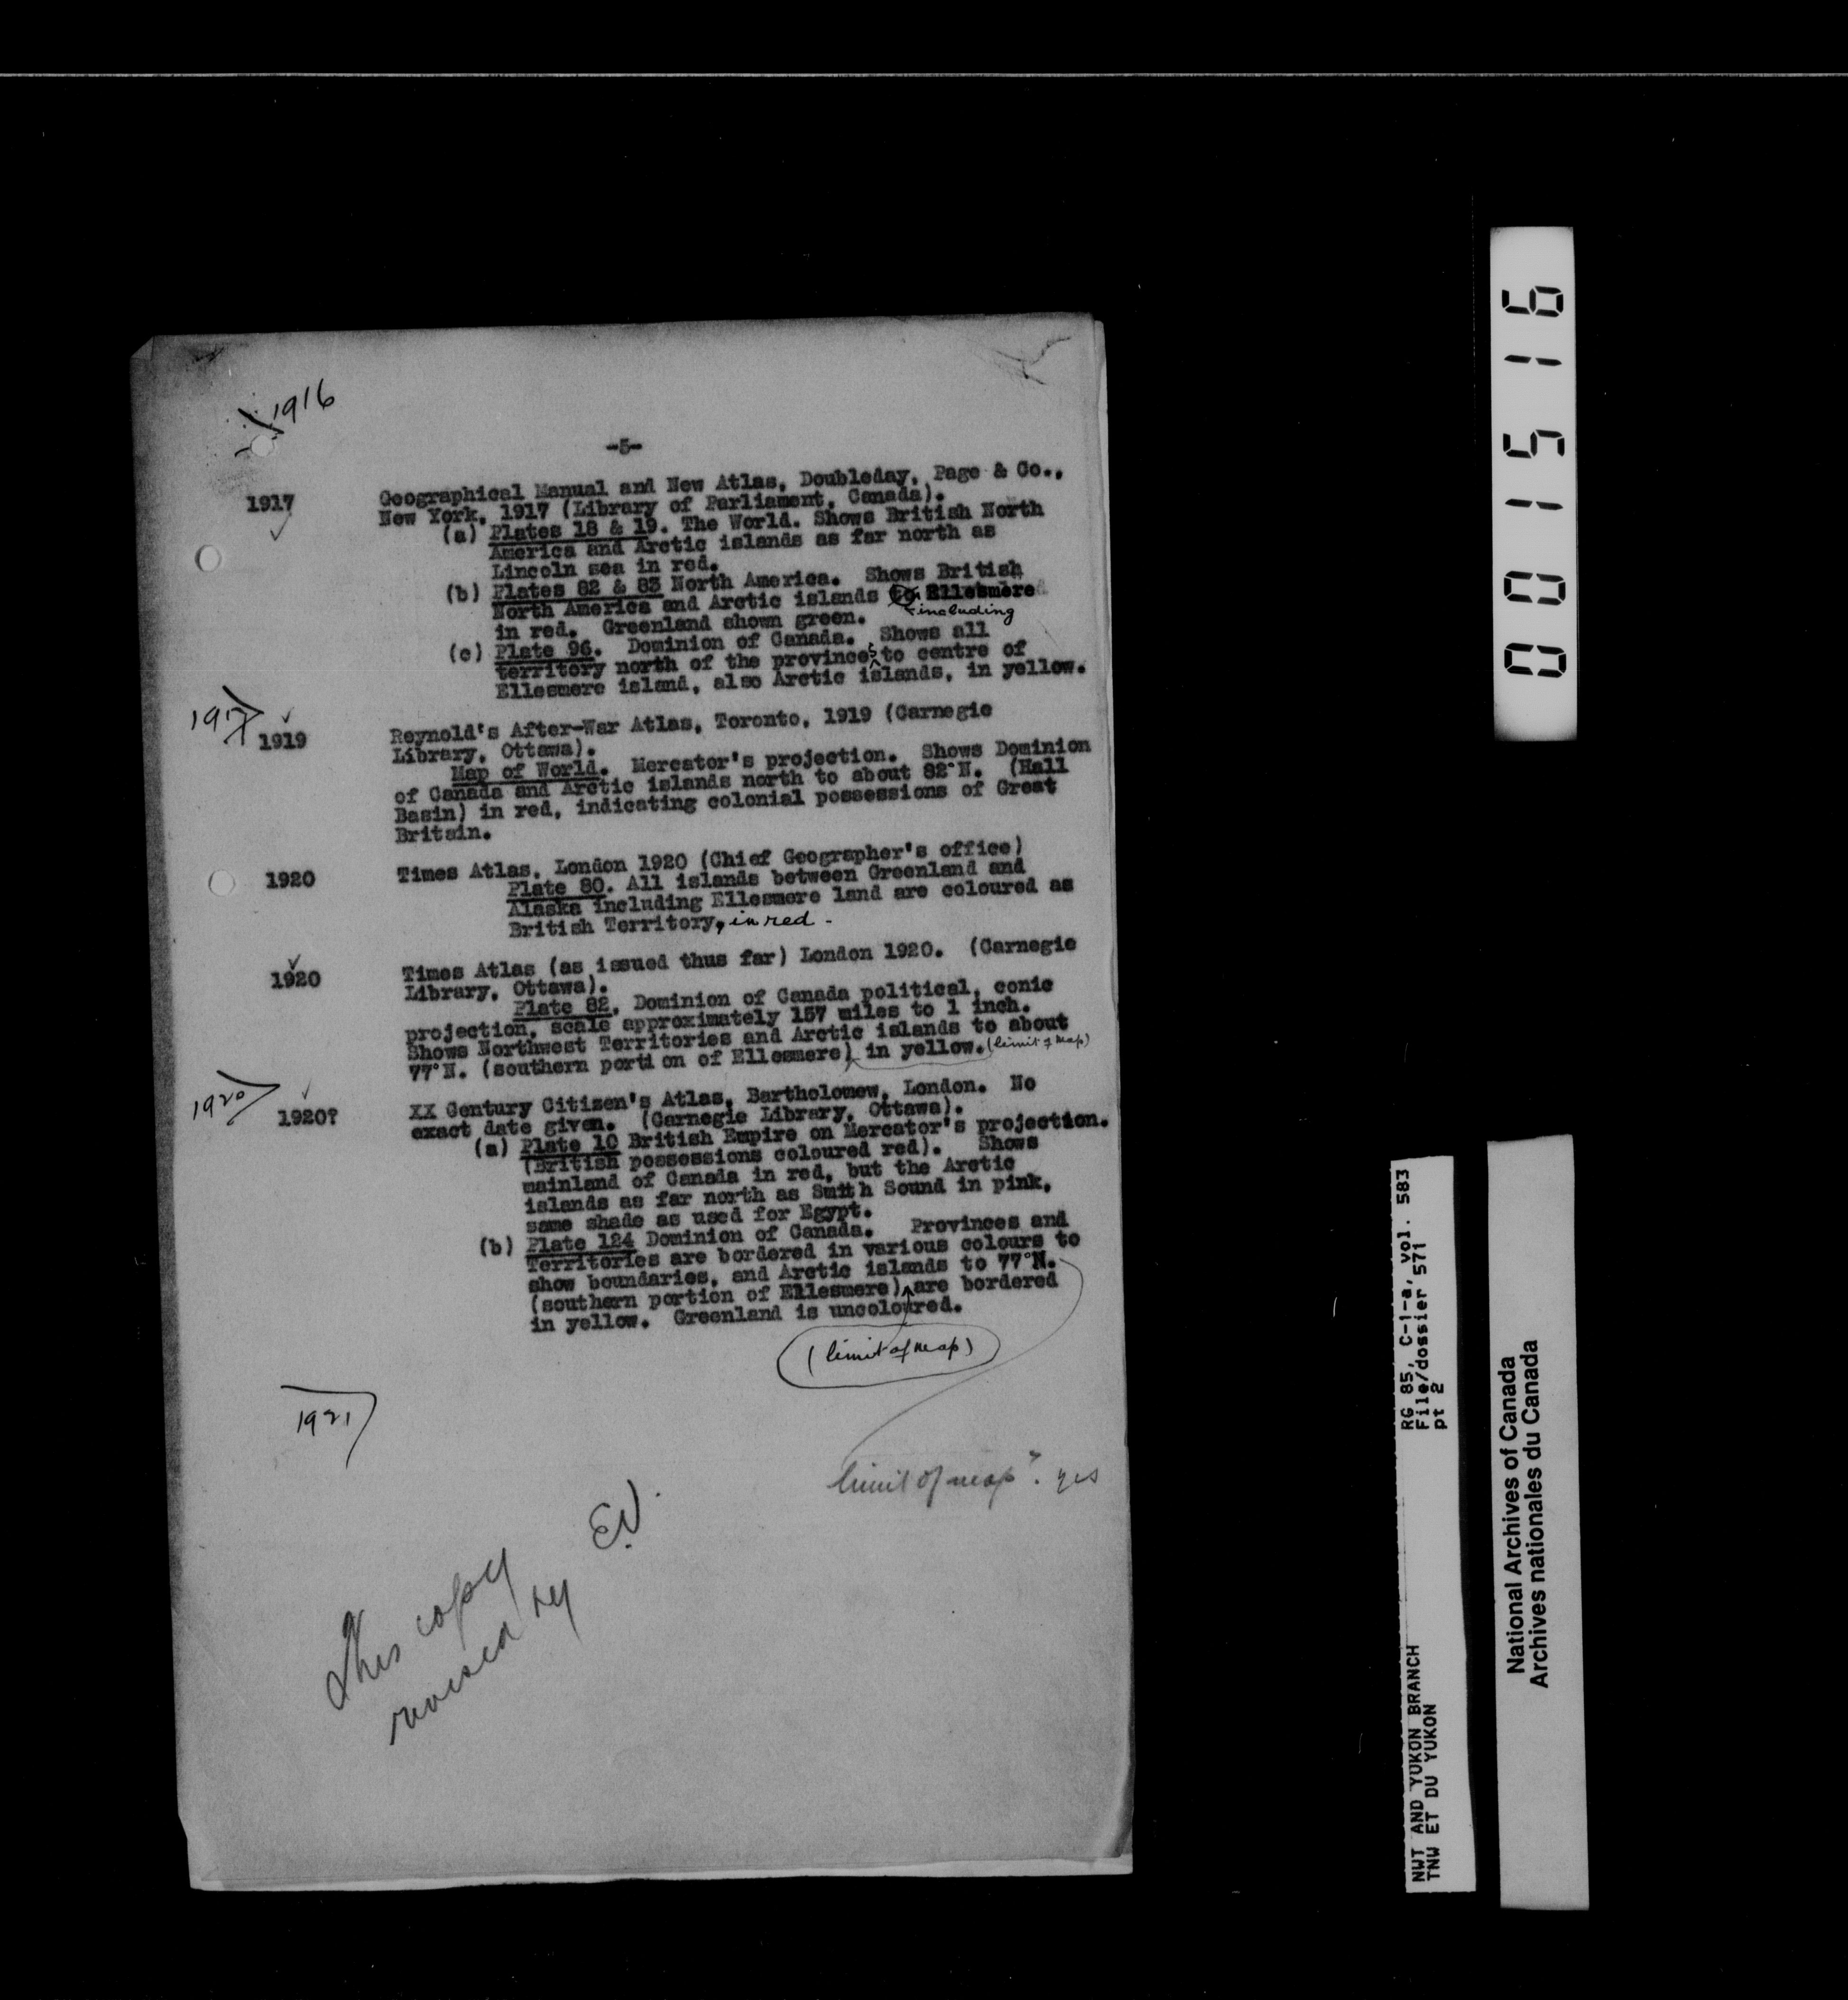 1916
-5-
1917 Geographical Manual and New Atlas, Doubleday, Page & Co.,
New York, 1917 (Library of Parliament, Canada).
(a) Plates 18 & 19. The World. Shows British North
America and Arctic islands as far north as
Lincoln sea in red.
(b) Plates 82 & 83 North America. Shows British
North America and Arctic islands to Ellesmere
including
in red. Greenland shown green.
(c) Plate 96. Dominion of Canada. Shows all
territory north of the provinces to centre of
Ellesmere island, also Arctic islands, in yellow.
1919 Reynold's After-War Atlas, Toronto, 1919 (Carnegie
Library, Ottawa).
Map of World. Mercator's projection. Shows Dominion
of Canada and Arctic islands north to about 82°N. (Hall
Basin) in red, indicating colonial possessions of Great
Britain.
1920 Times Atlas, London 1920 (Chief Geographer's office)
Plate 80. All islands between Greenland and
Alaska including Ellesmere land are coloured as
British Territory, in red.
1920 Times Atlas (as issued thus far) London 1920. (Carnegie
Library, Ottawa).
Plate 82, Dominion of Canada political, conic
projection, scale approximately 157 miles to 1 inch.
Shows Northwest Territories and Arctic islands to about
77°N. (southern portion of Ellesmere) in yellow. (limit of map)
1920
1920? XX Century Citizen's Atlas, Bartholomew, London. No
exact date given. (Carnegie Library, Ottawa).
(a) Plate 10 British Empire on Mercator's projection.
(British possessions coloured red). Shows
mainland of Canada in red, but the Arctic
islands as far north as Smith Sound in pink,
same shade as used for Egypt.
(b) Plate 124 Dominion of Canada. Provinces and
Territories are bordered in various colours to
show boundaries, and Arctic islands to 77°N.
(southern portion of Ellesmere) are bordered
in yellow. Greenland is uncoloured.
(limit of map)
1921
limit of map? yes
This copy
revised by
001516
RG 85, C-1-a, vol. 583
File/dossier 571
pt 2
NWT AND YUKON BRANCH
TNW ET DU YUKON
National Archives of Canada
Archives nationales du Canada